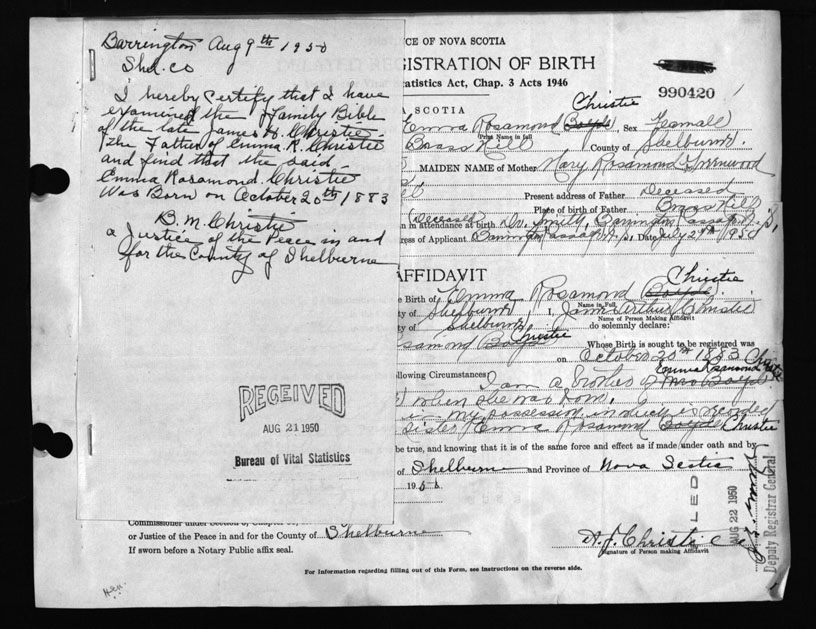 Barrington Aug 9th 1950
Shel. Co
I hereby certify that I have
examined the Family Bible
of the late James H. Christie
the Father of Emma. R. Christie
and find that the said
Emma Rosamond. Christie
Was Born on October 20th 1883
B. M. Christie
a Justice of the Peace in and
for the County of Shelburne
RECEIVED
AUG 21 1950
Bureau of Vital Statistics
CE OF NOVA SCOTIA
GISTRATION OF BIRTH
tatistics Act, Chap. 3 Acts 1946
990420
A SCOTIA
Christie
Emma Rosamond (Boyd) Sex Female
Print Name in full
Brass Hill County of Shelburne.
MAIDEN NAME of Mother Mary Rosamond Greenwood
Present address of Father Deceased
Place of birth of Father Brass Hill
n in attendance at birth (Deceased) Dr. Smith, Barrington Passage N.S.
ress of Applicant Barrington Passage N.S. Date July 27th 1950
AFFIDAVIT
Christie
e Birth of Emma Rosamond (Boyd)
Name in Full
ty of Shelburne, I, Arthur Christie
Name of Person Making Affidavit
ty of Shelburne do solemnly declare:
samond Boyd Christie Whose Birth is sought to be registered was
on October 20th 1883
ollowing Circumstances: I am a brother of Mrs Boyd Emma Rosamond Christie
when she was born.
in my possession in which is recorded
sister Emma Rosamond Boyd Christie
be true, and knowing that it is of the same force and effect as if made under oath and by
of Shelburne and Province of Nova Scotia
19
LED
AUG 22 1950
Deputy Registrar General
or Justice of the Peace in and for the County of Shelburne
If sworn before a Notary Public affix seal.
Christie
Signature of Person making Affidavit
For Information regarding filling out of this Form, see instructions on the reverse side.